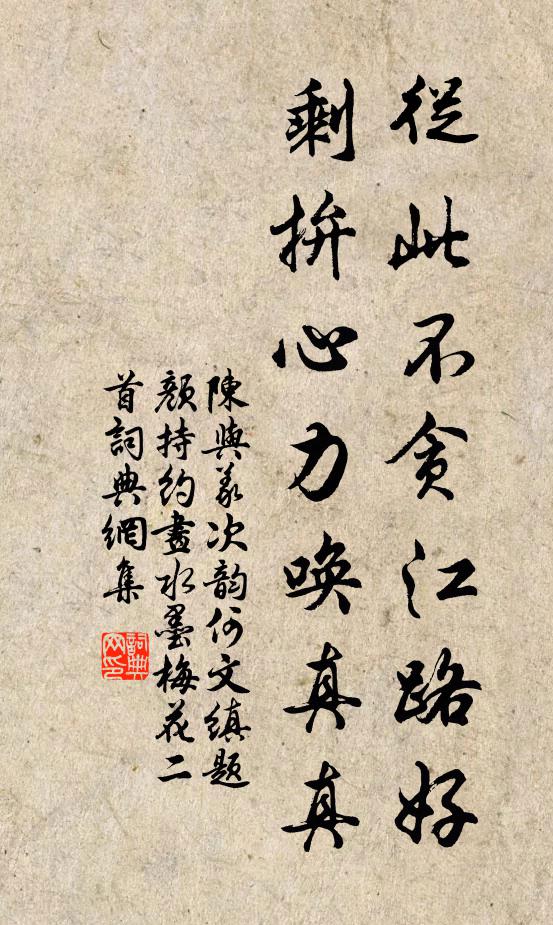 從此不貪江路好
剩拚心力喚真真
陳與義次韵何文縝題
顏持約畫水墨梅花二
首詞典網集
詞典
网印